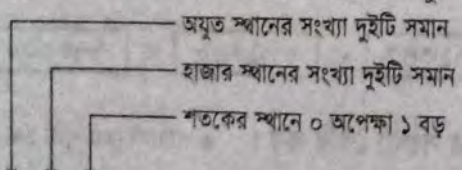 অযুত স্থানের সংখ্যা দুইটি সমান
হাজার স্থানের সংখ্যা দুইটি সমান
শতকের স্থানে ০ অপেক্ষা ১ বড়